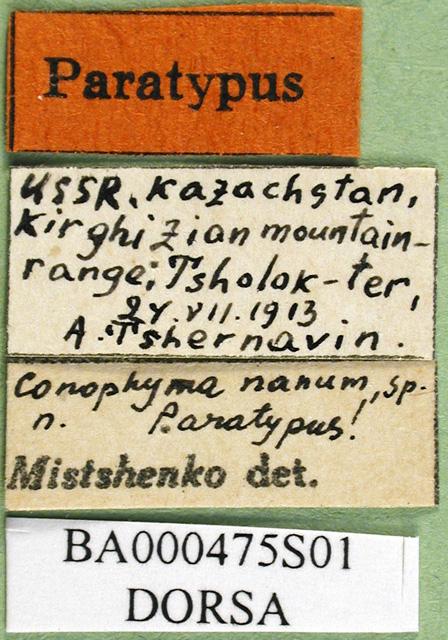 Paratypus
USSR, Kazachstan,
Kirghizian mountain-
range; Tsholok-ter,
24.VII.1913
A. Tshernavin.
Conophyma nanum, sp.
n. Paratypus!
Mistshenko det.
BA000475S01
DORSA